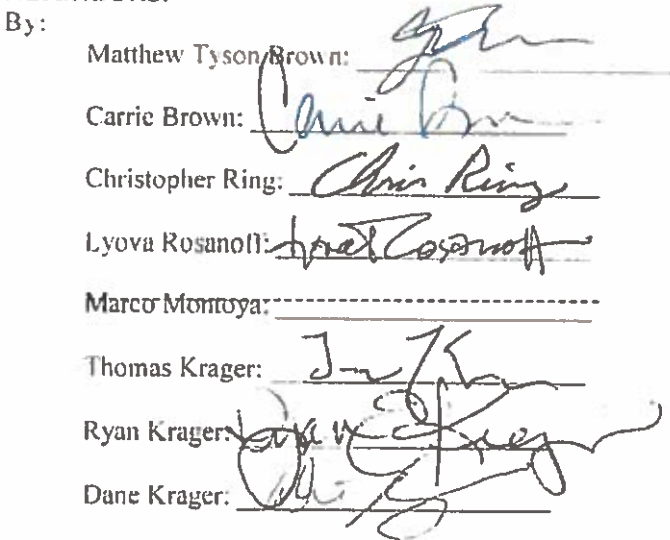 By:
Matthew Tyson Brown:
Carrie Brown: Carrie Brown
Christopher Ring: Chris Ring
Lyova Rosanoff: Lyova Rosanoff
Marco Montoya:
Thomas Krager:
Ryan Krager: Ryan Krager
Dane Krager: